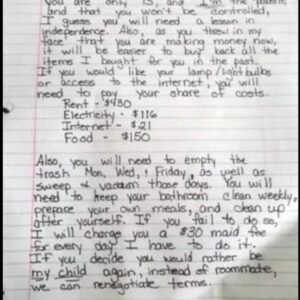 You are only 13, and I'm the parent,
and that you won't be controlled,
I guess you will need a lesson in
independence. Also, as you threw in my
face that you are making money now,
it will be easier to buy back all the
items I bought for you in the past.
If you would like your lamp/light bulbs
or access to the internet, you will
need to pay your share of costs.
Rent - $430
Electricity - $116
Internet - $21
Food - $150
Also, you will need to empty the
trash Mon, Wed, + Friday, as well as
sweep + vacuum those days. You will
need to keep your bathroom clean weekly,
prepare your own meals, and clean up
after yourself. If you fail to do so,
I will charge you a $30 maid fee
for every day I have to do it.
If you decide you would rather be
my child again, instead of roommate,
we can renegotiate terms.